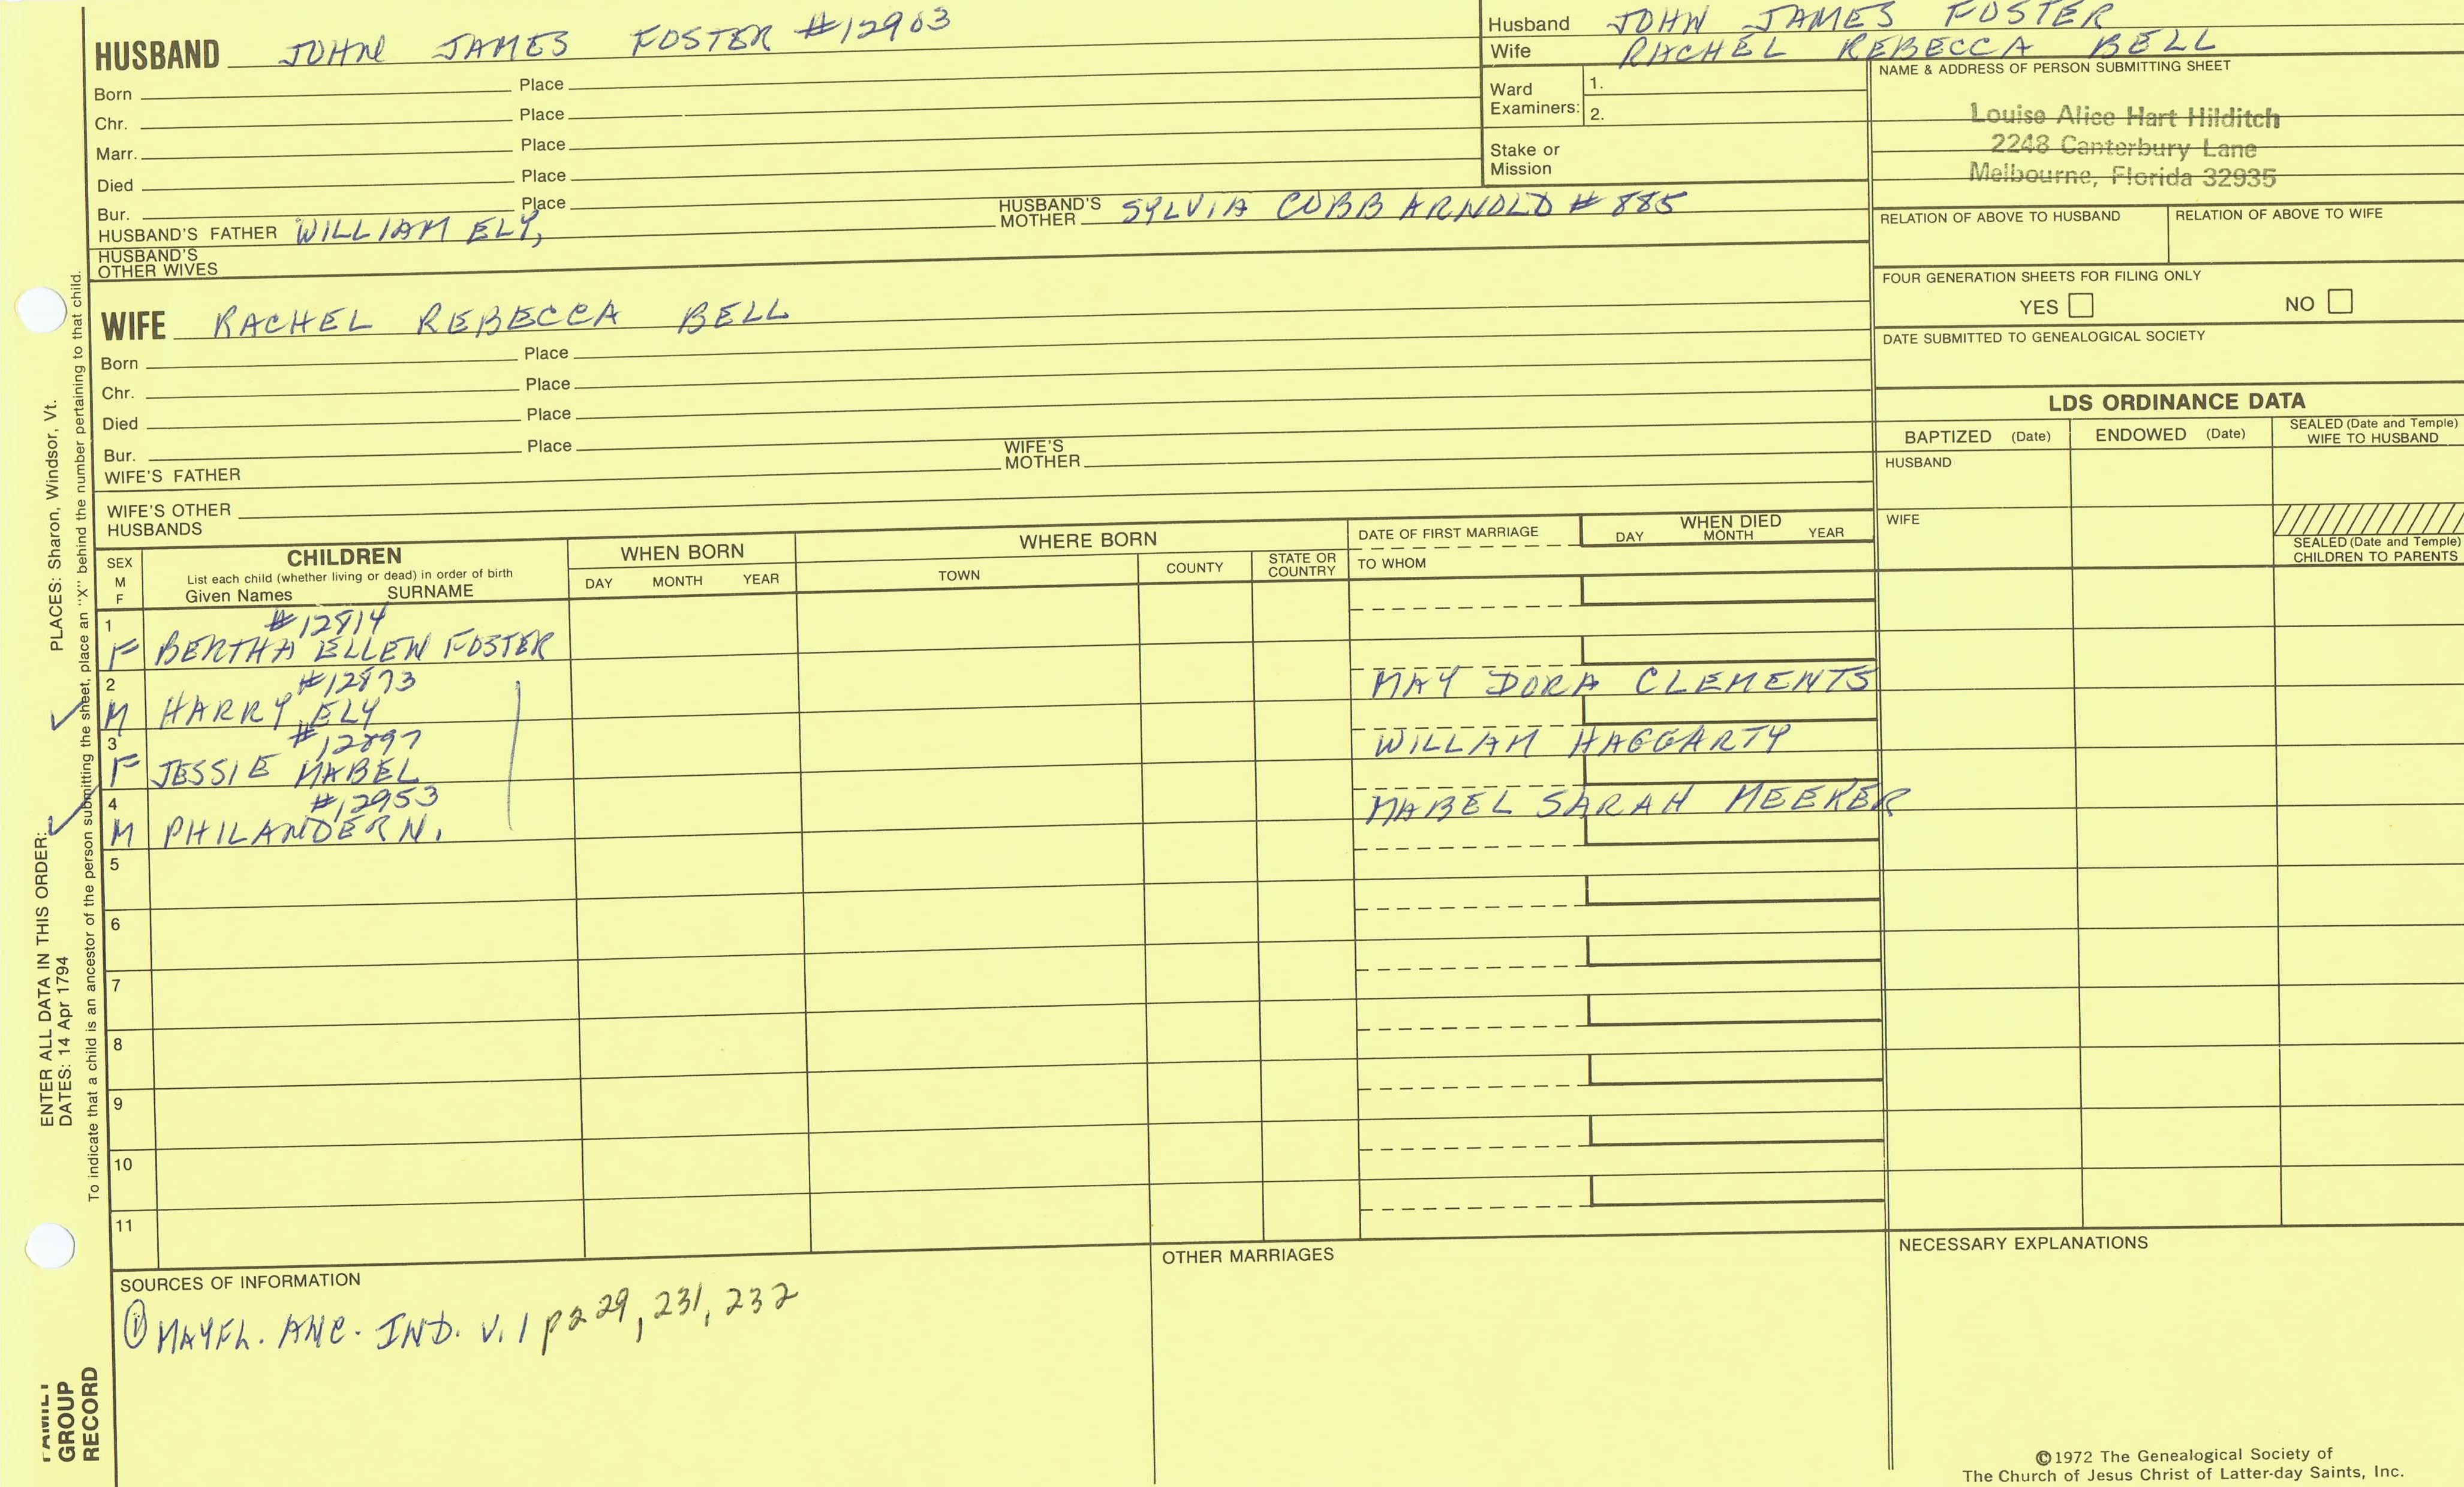 HUSBAND JOHN JAMES FOSTER #12903
Husband JOHN JAMES FOSTER
Wife RACHEL REBECCA BELL
Born Place
Chr. Place
Marr. Place
Died Place
Bur. Place
HUSBAND'S FATHER WILLIAM ELY, HUSBAND'S MOTHER SYLVIA COBB ARNOLD #885
HUSBAND'S OTHER WIVES
Ward Examiners: 1.
2.
Stake or Mission
NAME & ADDRESS OF PERSON SUBMITTING SHEET
Louise Alice Hart Hilditch
2248 Canterbury Lane
Melbourne, Florida 32935
RELATION OF ABOVE TO HUSBAND RELATION OF ABOVE TO WIFE
FOUR GENERATION SHEETS FOR FILING ONLY
YES NO
DATE SUBMITTED TO GENEALOGICAL SOCIETY
WIFE RACHEL REBECCA BELL
Born Place
Chr. Place
Died Place
Bur. Place
WIFE'S FATHER WIFE'S MOTHER
WIFE'S OTHER HUSBANDS
LDS ORDINANCE DATA
BAPTIZED (Date) ENDOWED (Date) SEALED (Date and Temple) WIFE TO HUSBAND
HUSBAND
WIFE
SEALED (Date and Temple) CHILDREN TO PARENTS
SEX M F
CHILDREN
List each child (whether living or dead) in order of birth
Given Names SURNAME
WHEN BORN
DAY MONTH YEAR
WHERE BORN
TOWN COUNTY STATE OR COUNTRY
DATE OF FIRST MARRIAGE
TO WHOM
WHEN DIED
DAY MONTH YEAR
1 #12814
F BERTHA ELLEN FOSTER
2 #12873 MAY DORA CLEMENTS
M HARRY ELY
3 #12897 WILLAM HAGGARTY
F JESSIE MABEL
4 #12953 MABEL SARAH MEEKER
M PHILANDER N.
5
6
7
8
9
10
11
SOURCES OF INFORMATION
① MAYFL. ANC. IND. V. 1 p 229, 231, 232
OTHER MARRIAGES
NECESSARY EXPLANATIONS
©1972 The Genealogical Society of
The Church of Jesus Christ of Latter-day Saints, Inc.
ENTER ALL DATA IN THIS ORDER:
DATES: 14 Apr 1794
PLACES: Sharon, Windsor, Vt.
To indicate that a child is an ancestor of the person submitting the sheet, place an "X" behind the number pertaining to that child.
FAMILY
GROUP
RECORD